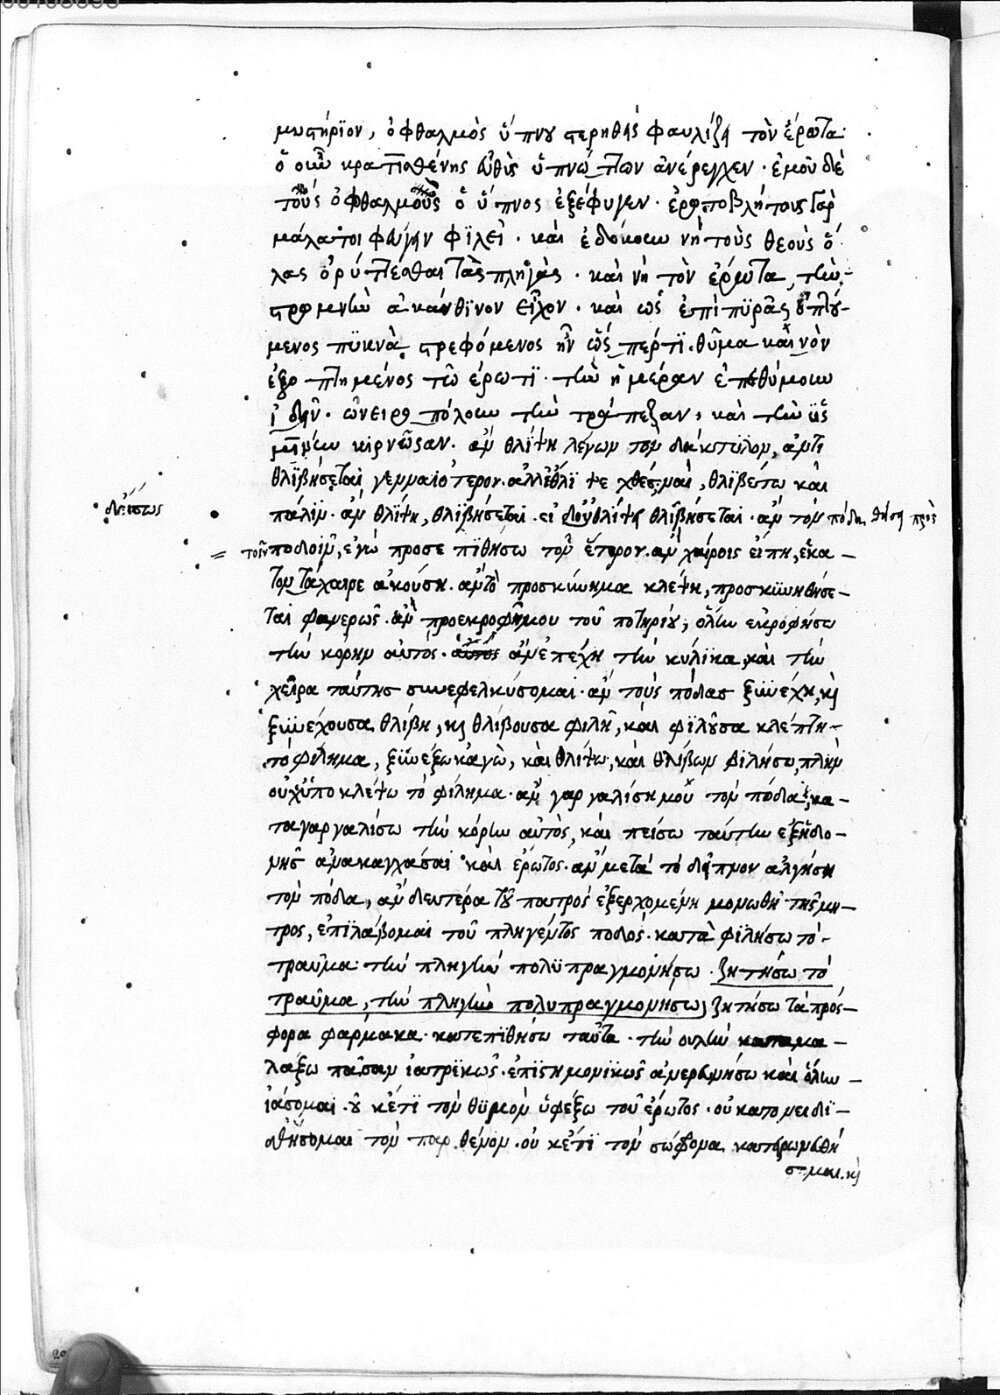 μωτήριον, ὀφθαλμὸς ὕπνου στερηθεὶς φαυλίζει τὸν ἔρωτα·
ὁ οὖν κρατισθένης αὖθις ὑπνώττων ἀνέρεγχεν· ἐμοῦ δὲ
τοὺς ὀφθαλμοὺς ὁ ὕπνος ἐξέφυγεν· ἐρωτοβλήτους γὰρ
μάλα τοι φυγεῖν φιλεῖ· καὶ ἐδόκουν νὴ τοὺς θεοὺς ὅ-
λας ὀρύττεσθαι τὰς πληγάς· καὶ νὴ τὸν ἔρωτα, τὴν
στρωμνὴν ἀκάνθινον εἶχον· καὶ ὡς ἐπὶ πυρᾶς ὀπτού-
μενος πυκνὰ στρεφόμενος ἦν ὡς περ τι θῦμα καινὸν
ἐξοπτημένος τῷ ἔρωτι· τὴν ἡμέραν ἐπεθύμουν
ἰδεῖν· ὠνειροπόλουν τὴν τράπεζαν, καὶ τὴν ὑσ
μίνην κιρνῶσαν· ἂν θλίψη λέγων τὸν δάκτυλον, ἀντι
θλιβήσεται γενναιότερον· ἀλλ' ἔθλιψε χθές, ναὶ, θλιβέτω καὶ
πάλιν· ἂν θλίψη, θλιβήσεται· εἰ δ' οὐ θλίψη θλιβήσεται· ἂν τὸν πόδα θήση πρὸς
τοῖν ποδοῖν, ἐγὼ προσεπιθήσω τὸν ἕτερον· ἂν χαίροις εἴπη, ἕκα-
τον τὰ χαῖρε ἀκούση· ἂν τὸ προσκύνημα κλέψη, προσκυνηθήσε-
ται φανερῶς· ἂν προεκροφήσει μου τοῦ ποτηρίου, ὅλην ἐκροφήσω
τὴν κόρην αὐτός· ἂν ἐπέχη τὴν κύλικα, καὶ τὴν
χεῖρα ταύτης συνεφελκύσομαι· ἂν τοὺς πόδας ξυνέχη, καὶ
ξυνέχουσα θλίβη, καὶ θλίβουσα φιλῆ, καὶ φιλοῦσα κλέπτη
τὸ φίλημα, ξυνέξω κἀγὼ, καὶ θλίψω, καὶ θλίβων φιλήσω, πλὴν
οὐχ ὑποκλέψω τὸ φίλημα· ἂν γαργαλίση μου τὸν πόδα, κα-
ταγαργαλίσω τὴν κόρην αὐτὸς, καὶ πείσω ταύτην ἐξ ἡδο-
νῆς ἀνακαγχάσαι καὶ ἔρωτος· ἂν μετὰ τὸ δεῖπνον ἀλγήση
τὸν πόδα, ἂν δευτέρα τοῦ πατρὸς ἐξερχομένη μονωθῆ τῆς μη-
τρὸς, ἐπιλάβομαι τοῦ πληγέντος ποδός· καταφιλήσω τὸ
τραῦμα· τὴν πληγὴν πολυπραγμονήσω· ζητήσω τὸ
τραῦμα, τὴν πληγὴν πολυπραγμονήσω, ζητήσω τὰ πρόσ-
φορα φάρμακα· κατεπιθήσω ταῦτα· τὴν οὐλὴν καταμα-
λάξω πᾶσαν ἰατρικῶς· ἐπιστημονικῶς ἀνερευνήσω καὶ ὅλην
ἰάσομαι· οὐκέτι τὸν θυμὸν ὑφέξω τοῦ ἔρωτος· οὐ κατονειδι-
σθήσομαι τὸν παρθένον· οὐκέτι τὸν σώφρονα κατειρωνευθή
σομαι· καὶ